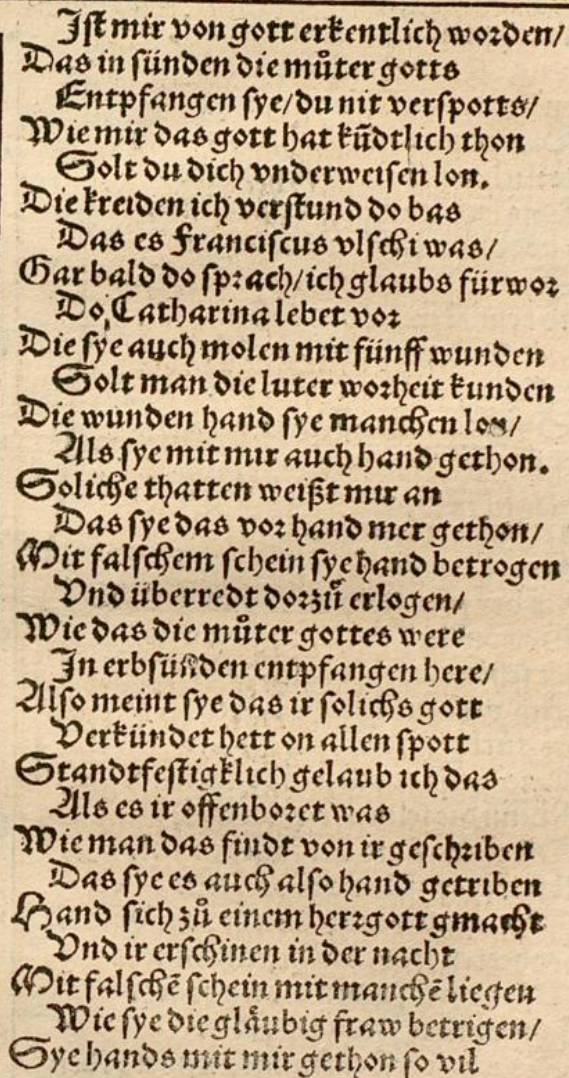 Ist mir von gott erkentlich worden/
Das in sünden die můter gotts
Entpfangen sye/du nit verspotts/
Wie mir das gott hat kũdtlich thon
Solt du dich vnderweisen lon.
Die kreiden ich verstund do bas
Das es Franciscus vlschi was/
Gar bald do sprach/ich glaubs fürwor
Do Catharina lebet vor
Die sye auch molen mit fünff wunden
Solt man die luter worheit kunden
Die wunden hand sye manchen lon/
Als sye mit mir auch hand gethon.
Soliche thatten weißt mir an
Das sye das vor hand mer gethon/
Mit falschem schein sye hand betrogen
Vnd überredt dorzů erlogen/
Wie das die můter gottes were
In erbsünden entpfangen here/
Also meint sye das ir solichs gott
Verkündet hett on allen spott
Standtfestigklich gelaub ich das
Als es ir offenboret was
Wie man das findt von ir geschriben
Das sye es auch also hand getriben
Hand sich zů einem herrgott gmacht
Vnd ir erschinen in der nacht
Mit falschẽ schein mit manchẽ liegen
Wie sye die glåubig fraw betrigen/
Sye hands mit mir gethon so vil